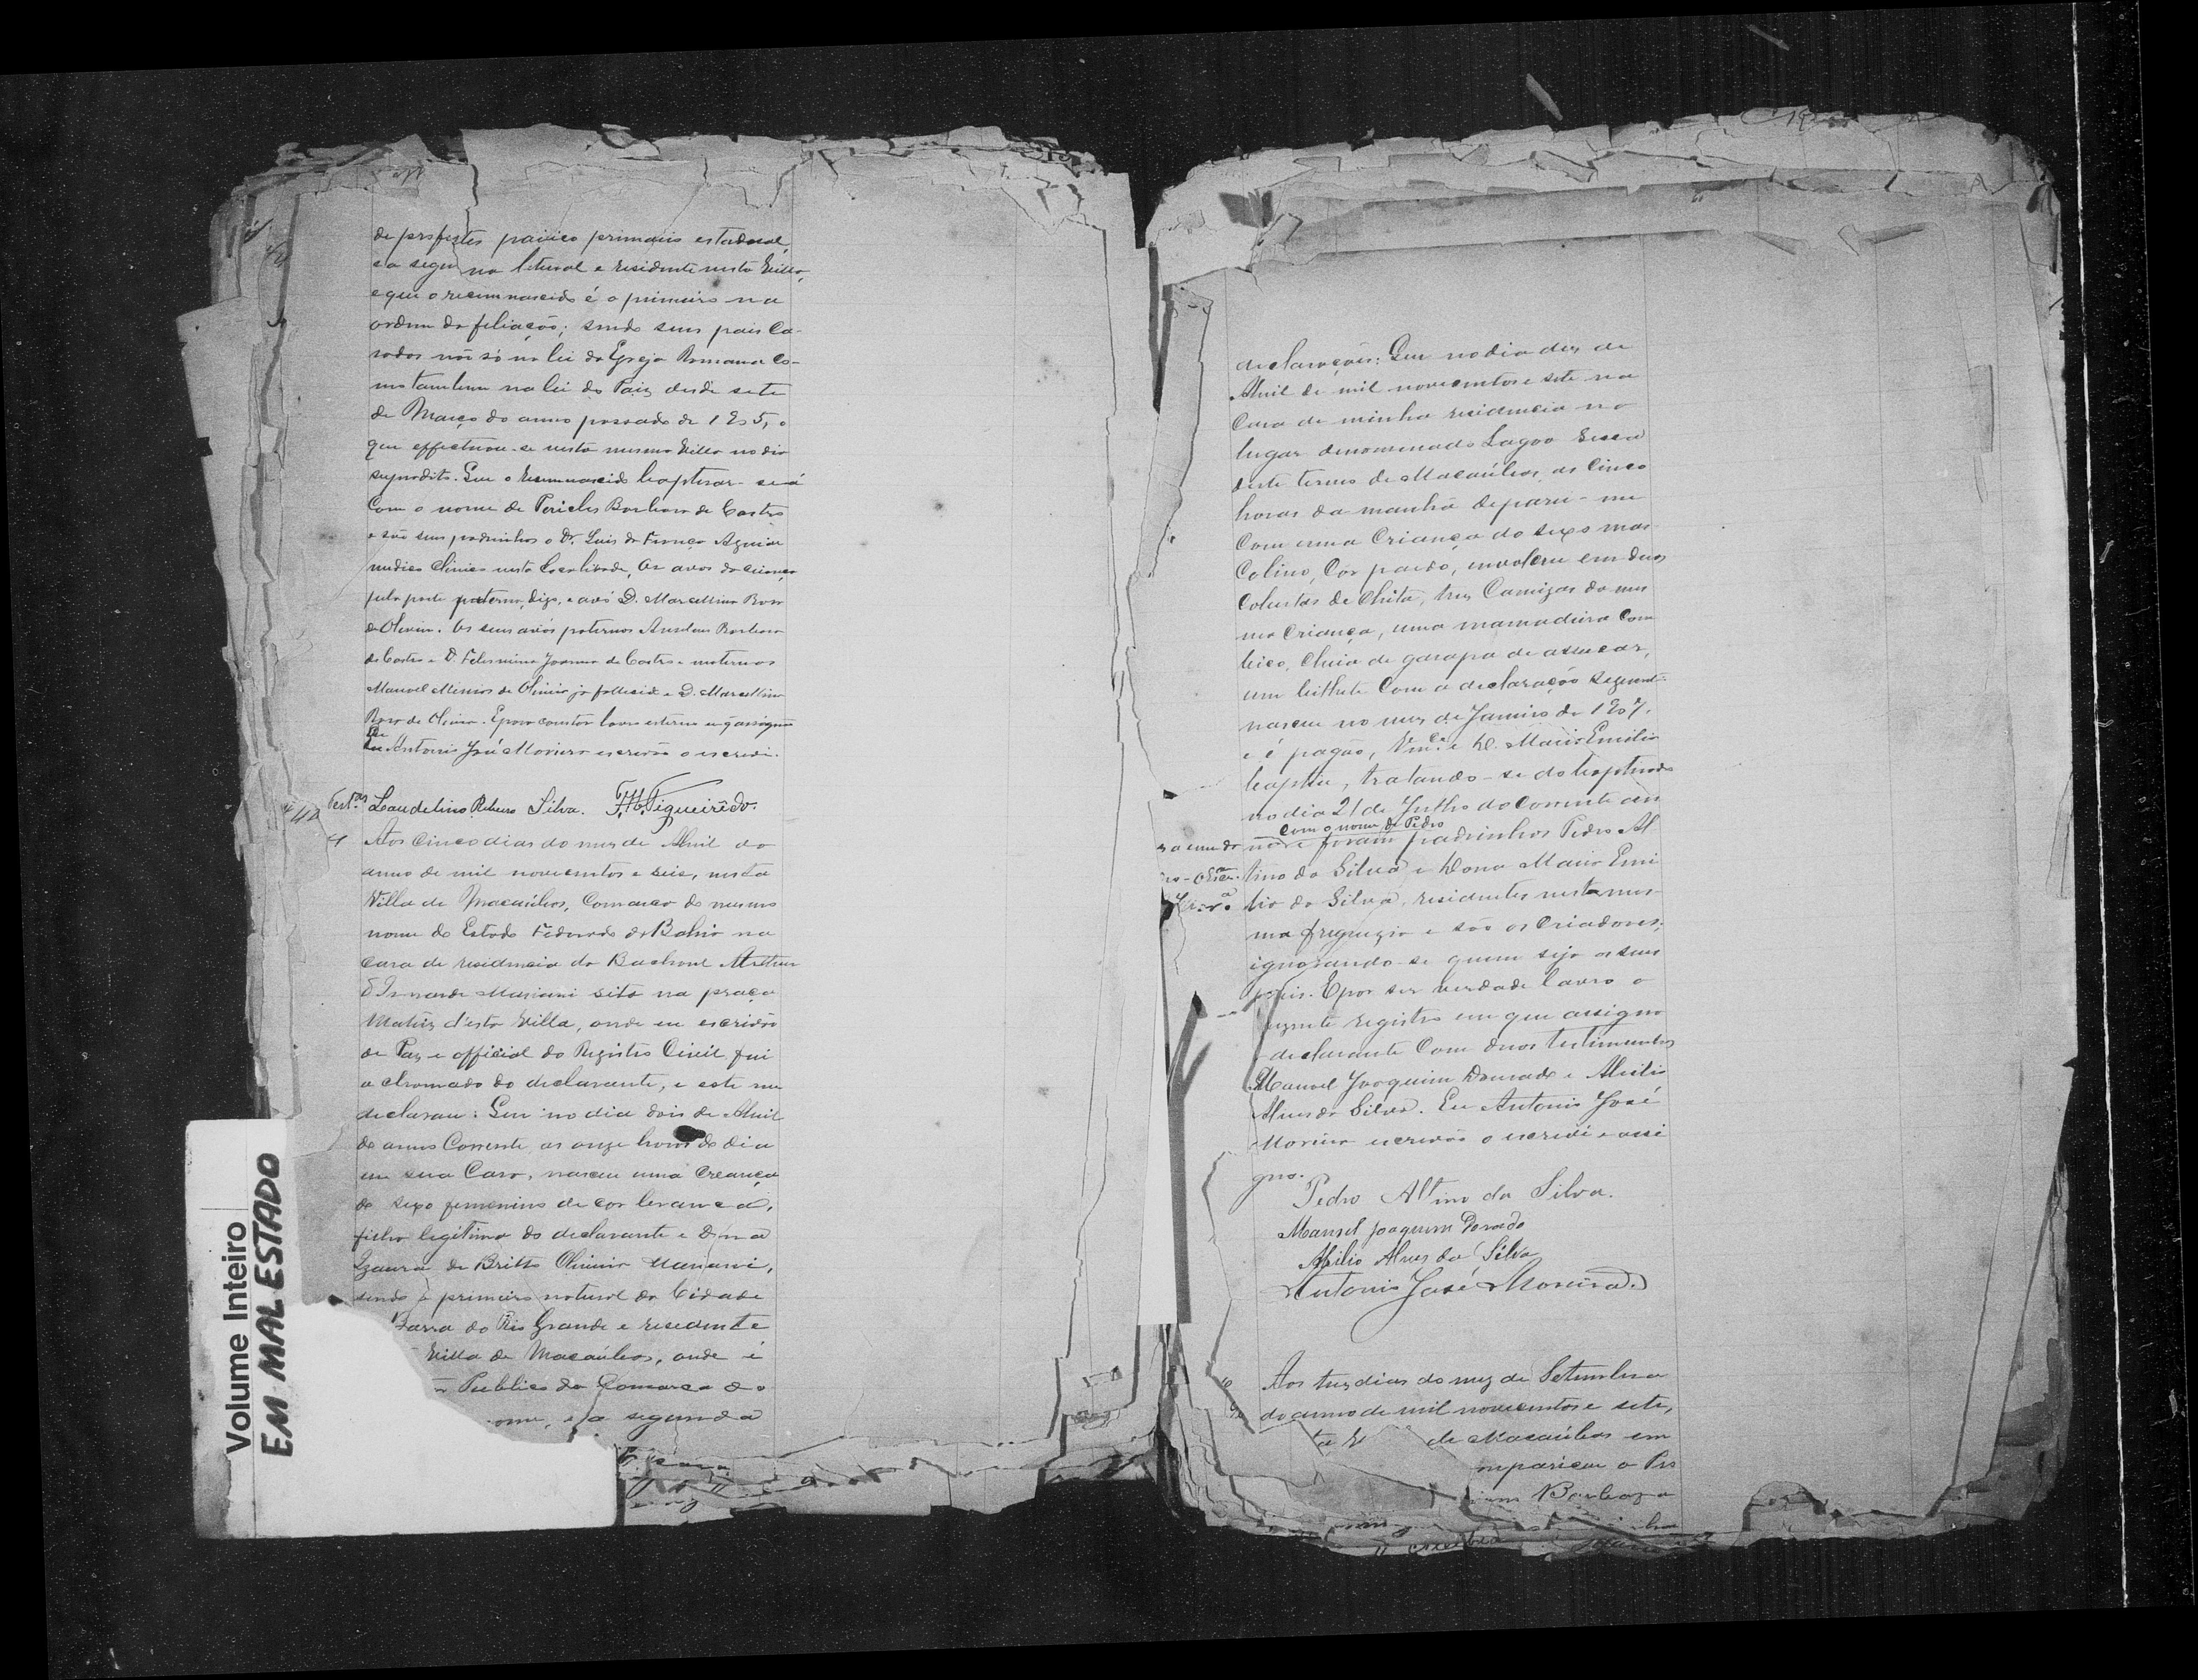 de professor primario estadoal,
e a segunda natural e residente nesta Villa,
e que o recemnascido é o primeiro na
ordem da filiação; sendo seus pais Ca-
sados não só na lei da Egreja Romana Co-
mo tambem na lei do Paiz desde sete
de Março do anno passado de 1905, o
que effectuou-se nesta mesma Villa no dia
supradito. Que o recemnascido baptisar-se-á
Com o nome de Pericles Barbosa de Castro
e são seus padrinhos o Dr. Luis da França Aguiar
medico clinico nesta localidade, Os avos da criança
pela parte paterna, digo, e avó D. Marcellina Rosa
de Oliveira. Os seus avós paternos Anselmo Barbosa
de Castro e D. Felismina Joanna de Castro e maternos
Manoel de Oliveira ja fallecido e D. Marcellina
Rosa de Oliveira. E para constar lavro este
Eu
Antonio José Moreira escrivão o escrevi.
Test.as Laudelino Ribeiro Silva. Figueirêdo.
Aos cinco dias do mez de Abril do
anno de mil novecentos e seis, nesta
Villa de Macaúbas, Comarca do mesmo
nome do Estado Federado da Bahia na
casa de residencia do Bacharel Arthur
Mariani sita na praça
Matriz d'esta Villa, onde eu escrivão
de Paz e official do Registro Civil fui
a chamado do declarante, e este me
declarou: Que no dia dois de Abril
do anno Corrente as onze horas do dia
em sua Casa, nasceu uma Creança
do sexo femenino de cor branca,
filha legitima do declarante e Dona
Izaura de Britto Oliveira Mariani,
sendo o primeiro natural da Cidade
Barra do Rio Grande e residente
Villa de Macaúbas, onde é
Publico da Comarca do
nome, e a segunda
declarações: Que no dia dez de
Abril de mil novecentos e sete na
Casa de minha residencia no
lugar denominado Lagoa
deste termo de Macaúbas, as Cinco
horas da manhã deparei-me
Com uma Criança do sexo mas-
Colino, Côr pardo, involta em duas
Cobertas de Chita, tres Camizas da mes
ma Criança, uma mamadeira Com
bico, Cheia de garapa de assucar,
um bilhete Com a declaração seguinte:
nasceu no mez de Janeiro de 1907.
e é pagão, Vmcê e D. Maria Emilia
baptise, tratando-se do baptisado
no dia 21 de Julho do Corrente an
com o nome de Pedro
no e foram padrinhos Pedro Al
tino da Silva e Dona Maria Emi
lia da Silva, residentes nesta mes-
ma freguezia e são os Criadores;
ignorando-se quem seja os seus
pais. E por ser verdade lavro o
prezente registro em que assigna
o declarante Com duas testimunhas
Manoel Joaquim Dourado e Abilio
Alves da Silva. Eu Antonio José
Moreira escrivão o escrevi e assi
gno.
Pedro Altino da Silva.
Manoel Joaquim Dorado
Abilio Alves da Silva
Antonio José Moreira.
Aos tres dias do mez de Setembro
do anno de mil novecentos e sete,
ta V de Macaúbas em
mpareceu o
Barboza
Volume Inteiro
EM MAL ESTADO